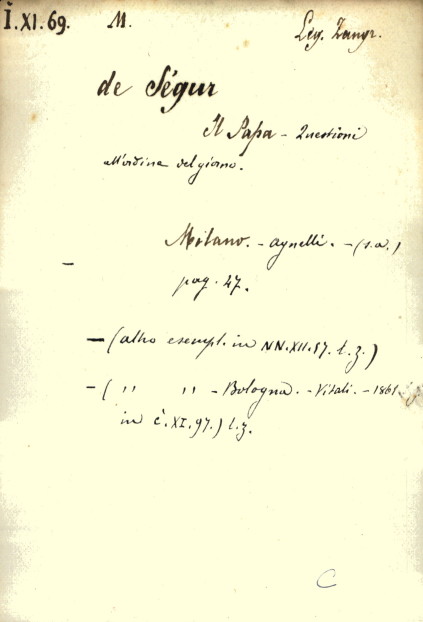 Ī.XI.69. M. Leg. Zangr.
de Ségur
Il Papa - Questioni
all'ordine del giorno.
Milano. - Agnelli. - (s.a.)
pag. 47.
- (altro esempl. in NN.XII.87. l.z.)
- ( ,, ,, - Bologna. - Vitali. - 186
in č.XI.97.) l.z.
C